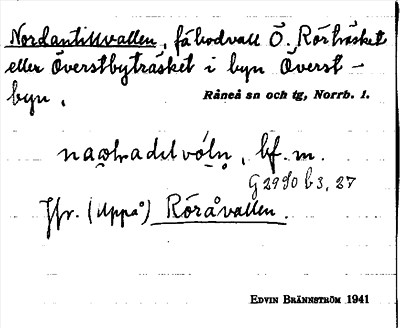 Nordantillvallen, fäbodvall Ö. Rörträsket
eller Överstbyträsket i byn Överst-
byn.
Råneå sn och tg, Norrb. l.
bf. m.
G 2990 b 3, 27
Jfr. (Uppå) Röråvallen.
Edvin Brännström 1941